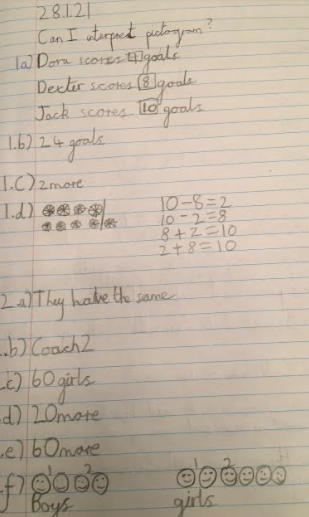 28.1.21
Can I interpret pictogram?
1a) Dora scores 4 goals
Dexter scores 8 goals
Jack scores 10 goals
1.b) 24 goals
1.C) 2more
1.d)
10-8=2
10-2=8
8+2=10
2+8=10
2.a) They have the same
.b) Coach2
.c) 60girls
d) 20more
.e) 60more
.f) 1 2
Boys
1 2
girls